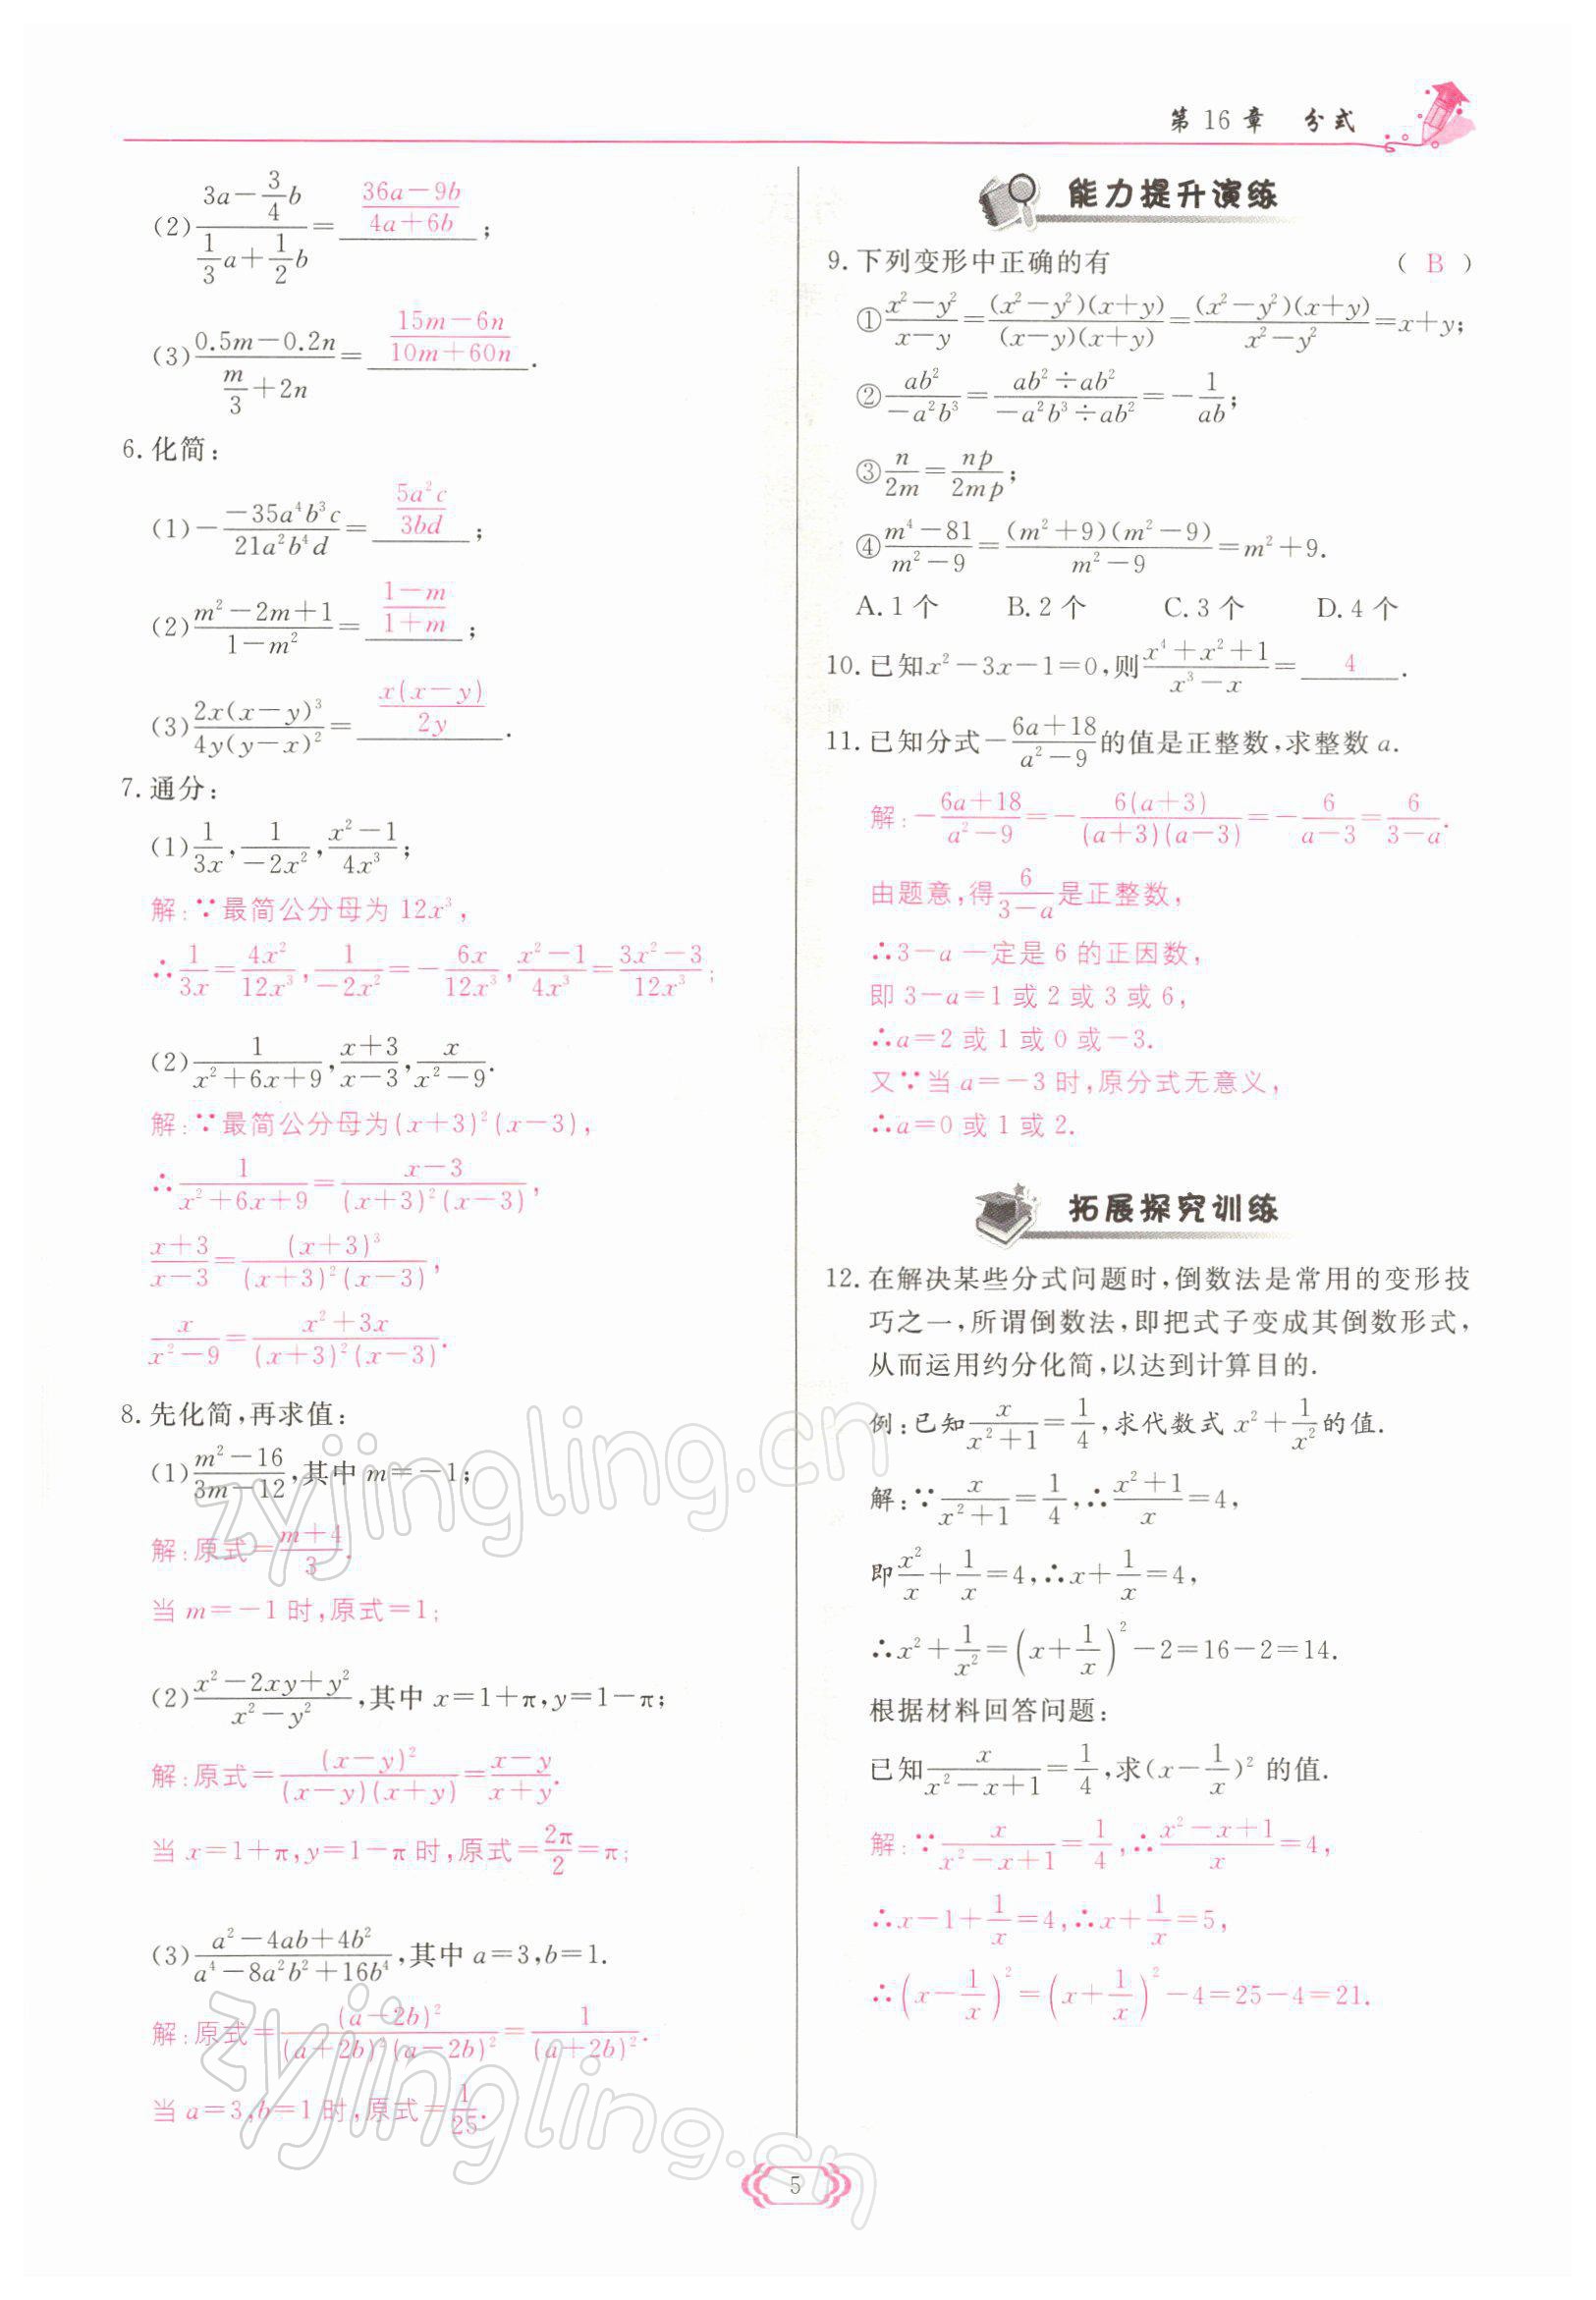 第 16 章 分式
(2) (3a－3/4 b)/(1/3 a＋1/2 b)＝(36a－9b)/(4a＋6b)；
(3) (0.5m－0.2n)/(m/3＋2n)＝(15m－6n)/(10m＋60n).
6. 化简：
(1)－(－35a⁴b³c)/(21a²b⁴d)＝5a²c/3bd；
(2) (m²－2m＋1)/(1－m²)＝(1－m)/(1＋m)；
(3) 2x(x－y)³/4y(y－x)²＝x(x－y)/2y.
7. 通分：
(1) 1/3x，1/(－2x²)，(x²－1)/4x³；
解：∵最简公分母为 12x³，
∴1/3x＝4x²/12x³，1/(－2x²)＝－6x/12x³，(x²－1)/4x³＝(3x²－3)/12x³；
(2) 1/(x²＋6x＋9)，(x＋3)/(x－3)，x/(x²－9).
解：∵最简公分母为(x＋3)²(x－3)，
∴1/(x²＋6x＋9)＝(x－3)/((x＋3)²(x－3))，
(x＋3)/(x－3)＝(x＋3)³/((x＋3)²(x－3))，
x/(x²－9)＝(x²＋3x)/((x＋3)²(x－3)).
8. 先化简，再求值：
(1) (m²－16)/(3m－12)，其中 m＝－1；
解：原式＝(m＋4)/3.
当 m＝－1 时，原式＝1；
(2) (x²－2xy＋y²)/(x²－y²)，其中 x＝1＋π，y＝1－π；
解：原式＝(x－y)²/((x－y)(x＋y))＝(x－y)/(x＋y).
当 x＝1＋π，y＝1－π 时，原式＝2π/2＝π；
(3) (a²－4ab＋4b²)/(a⁴－8a²b²＋16b⁴)，其中 a＝3，b＝1.
解：原式＝(a－2b)²/((a＋2b)²(a－2b)²)＝1/(a＋2b)².
当 a＝3，b＝1 时，原式＝1/25.
能力提升演练
9. 下列变形中正确的有 （ B ）
①(x²－y²)/(x－y)＝(x²－y²)(x＋y)/((x－y)(x＋y))＝(x²－y²)(x＋y)/(x²－y²)＝x＋y；
②ab²/(－a²b³)＝(ab²÷ab²)/(－a²b³÷ab²)＝－1/ab；
③n/2m＝np/2mp；
④(m⁴－81)/(m²－9)＝(m²＋9)(m²－9)/(m²－9)＝m²＋9.
A. 1 个 B. 2 个 C. 3 个 D. 4 个
10. 已知x²－3x－1＝0，则(x⁴＋x²＋1)/(x³－x)＝ 4 .
11. 已知分式－(6a＋18)/(a²－9)的值是正整数，求整数 a.
解：－(6a＋18)/(a²－9)＝－6(a＋3)/((a＋3)(a－3))＝－6/(a－3)＝6/(3－a).
由题意，得6/(3－a)是正整数，
∴3－a 一定是 6 的正因数，
即 3－a＝1 或 2 或 3 或 6，
∴a＝2 或 1 或 0 或－3.
又∵当 a＝－3 时，原分式无意义，
∴a＝0 或 1 或 2.
拓展探究训练
12. 在解决某些分式问题时，倒数法是常用的变形技
巧之一，所谓倒数法，即把式子变成其倒数形式，
从而运用约分化简，以达到计算目的.
例：已知x/(x²＋1)＝1/4，求代数式 x²＋1/x²的值.
解：∵x/(x²＋1)＝1/4，∴(x²＋1)/x＝4，
即x²/x＋1/x＝4，∴x＋1/x＝4，
∴x²＋1/x²＝(x＋1/x)²－2＝16－2＝14.
根据材料回答问题：
已知x/(x²－x＋1)＝1/4，求(x－1/x)² 的值.
解：∵x/(x²－x＋1)＝1/4，∴(x²－x＋1)/x＝4，
∴x－1＋1/x＝4，∴x＋1/x＝5，
∴(x－1/x)²＝(x＋1/x)²－4＝25－4＝21.
zyjingling.cn
zyjingling.cn
5